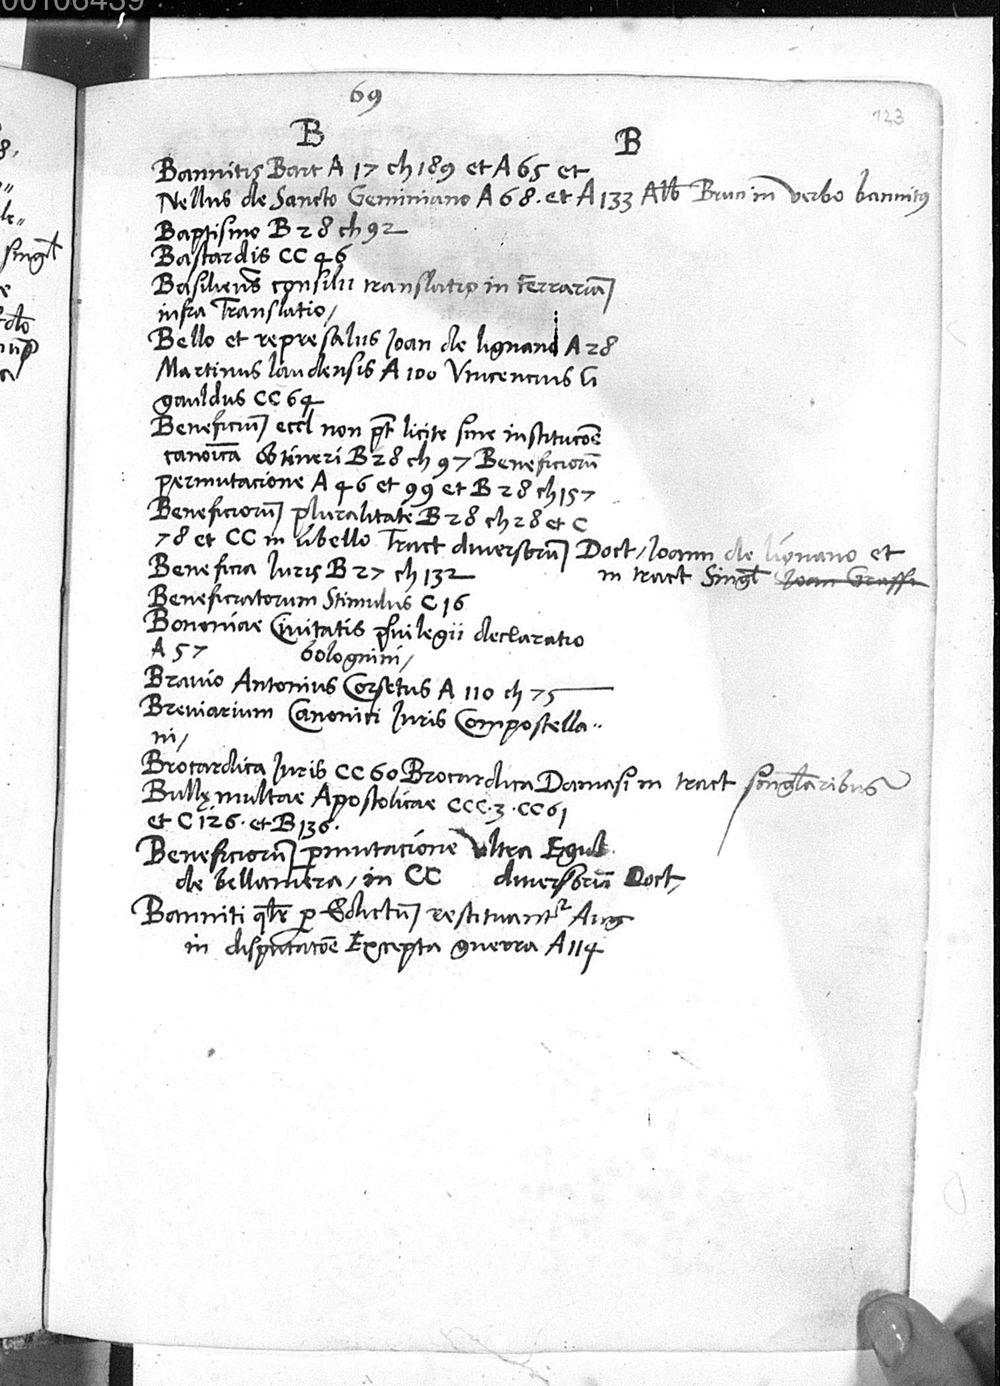 00106439
69
123
B B
Bannitis Bart A 17 ch 189 et A 65 et
Nellus de Sancto Geminiano A 68. et A 133 Alb Bruni in verbo bannitus
Baptismo B 28 ch 92
Bastardis CC 46
Basiliens̄ consilii translatio in Ferrariam
infra Translatio/
Bello et represalus Joan de lignano A 28
Martinus laudensis A 100 Vincencius li
gauldus CC 64
Beneficium eccl non pt̄ licite sine institucōe
canoīca obtineri B 28 ch 97 Beneficiorū
permutacione A 46 et 99 et B 28 ch 157
Beneficiorum pluralitate B 28 ch 28 et C
78 et CC in libello Tract diversorum Doct/ Joann de lignano et
Beneficia Juris B 27 ch 132 in tract Singl̄ Joan Graffi
Beneficiatorum Stimulus C 16
Bononiae Civitatis pīvilegii declaratio
A 57 bolognini/
Bravio Antonius Corsetus A 110 ch 75
Breviarium Canonici Juris Compostella..
ni/
Brocardica Juris CC 60 Brocardica Damasi in tract singl̄aribus
Bullę multae Apostolicae CCC. 3. CC 61
et C 126. et B 136.
Beneficiorum pmutacione ultra Egid
de bellamera/ in CC diversorū Doct/
Banniti qtr̄ p Edictum restituant2 Aug
in disputatōe Excepta guerra A 114